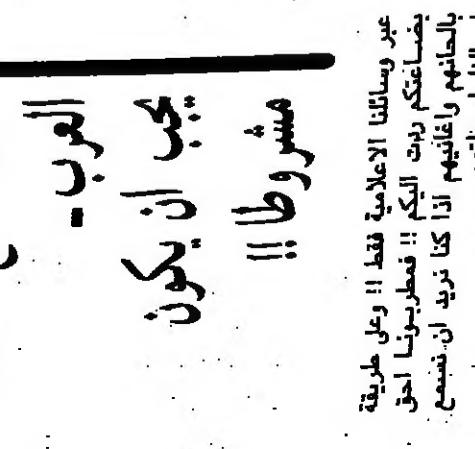 العرب -
يجب ان يكون
مشروطا !!
عبر وسائلنا الاعلامية فقط !! وعلى طريقة
بضاعتكم ردت اليكم !! فمطربونا احق
بالحانهم واغانيهم اذا كنا نريد ان نسمع